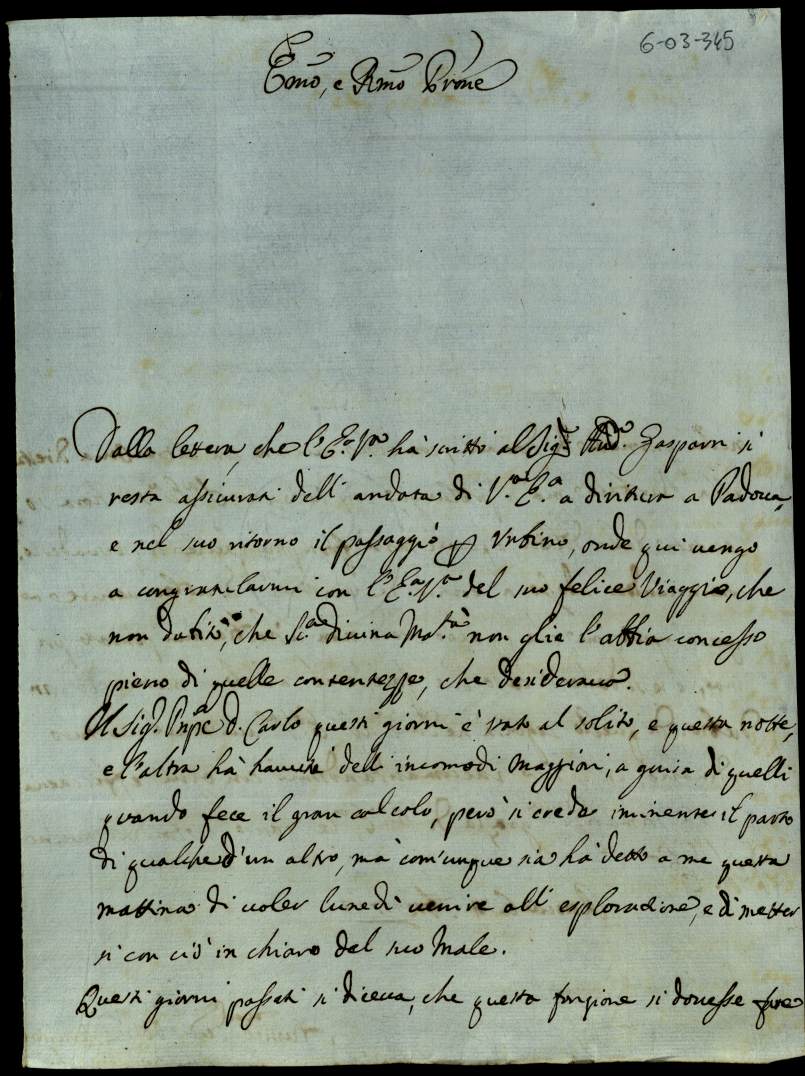 6-03-345
Emo, e Rmo Prone
Dalla lettera, che l'E.a V.a hà scritto al Sig.r Aud.e Gasparri si
resta assicurati dell' andata di V.a E.a a diritura a Padoua,
e nel suo ritorno il passaggio p Urbino, onde qui uengo
a congratularmi con l'E.a V.a del suo felice Viaggio, che
non dubito, che S.a diuina Ma.tà non glie l'abbia concesso
pieno di quelle contentezze, che desideraua.
Il Sig.r Pnpe D. Carlo questi giorni è stato al solito, e questa notte,
e l'altra hà hauuto delli incomodi maggiori, a guisa di quelli
quando fece il gran calcolo, però si crede iminente il parto
di qualche d'un altro, mà com'unque sia hà detto a me questa
mattina di uoler lunedi uenire all' esplorazione, e di metter
si con ciò in chiaro del suo Male.
Questi giorni passati si diceua, che questa fonzione si douesse fare